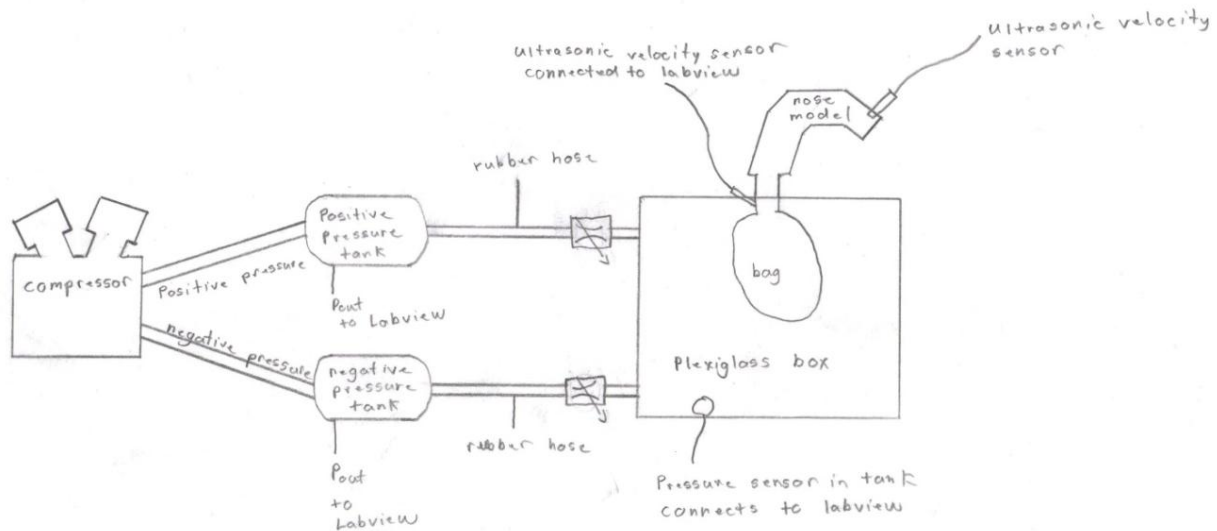 ultrasonic velocity
sensor
ultrasonic velocity sensor
connected to labview
nose
model
rubber hose
Positive
pressure
tank
compressor
Positive pressure
bag
Pout
to Labview
negative pressure
negative
pressure
tank
Plexiglass box
rubber hose
Pout
to
Labview
Pressure sensor in tank
connects to labview